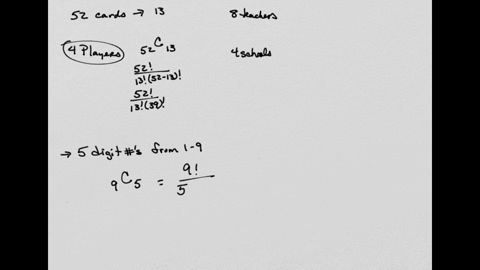 52 cards → 13
8 teachers
4 Players
52C13
4 schools
52!
13!(52-13)!
52!
13!(39)!
→ 5 digit #'s from 1-9
9C5 = 9!
5